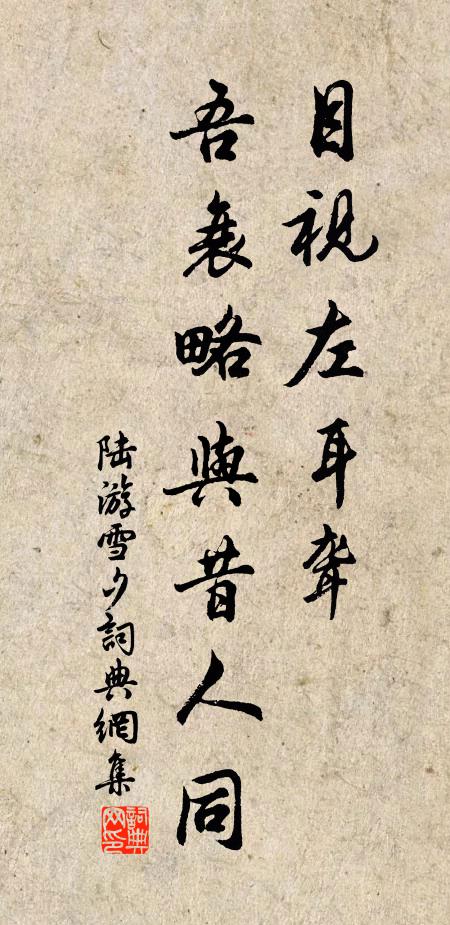 目視左耳聋
吾衰略與昔人同
陆游雪夕詞典網集
詞典网印